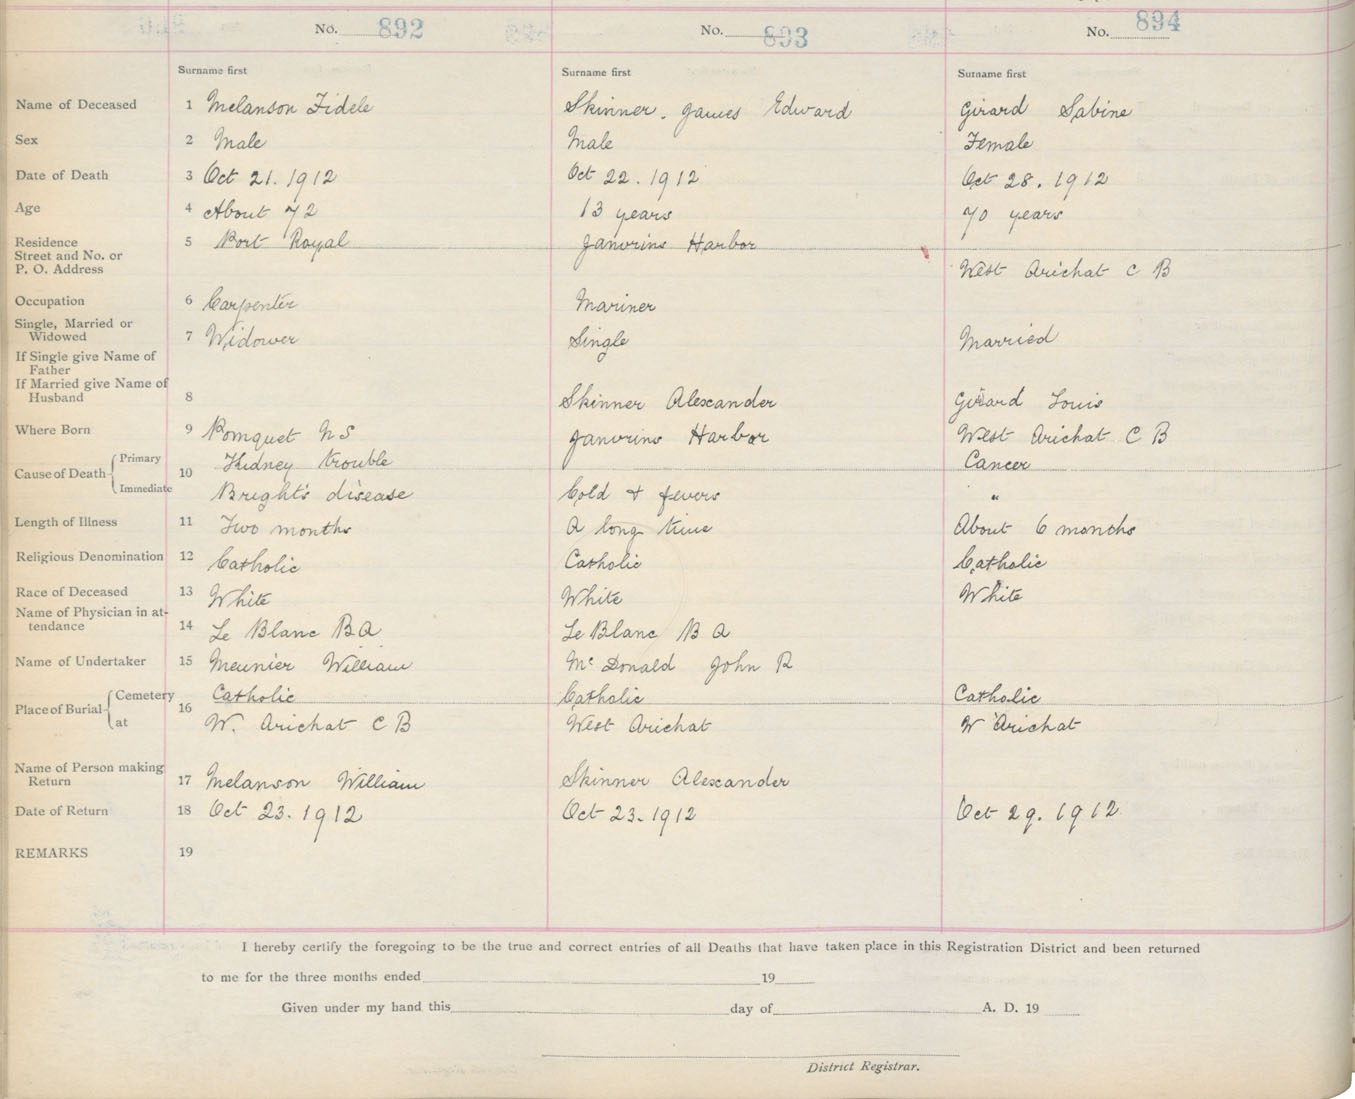 No. 892 No. 893 No. 894
Surname first Surname first Surname first
Name of Deceased 1 Melanson Fidele Skinner, James Edward Girard Sabine
Sex 2 Male Male Female
Date of Death 3 Oct 21. 1912 Oct 22. 1912 Oct 28. 1912
Age 4 About 72 13 years 70 years
Residence 5 Port Royal Janvrins Harbor
Street and No. or
P. O. Address West Arichat C B
Occupation 6 Carpenter Mariner
Single, Married or
Widowed 7 Widower Single Married
If Single give Name of
Father
If Married give Name of
Husband 8 Skinner Alexander Girard Louis
Where Born 9 Pomquet N S Janvrins Harbor West Arichat C B
Cause of Death Primary 10 Kidney trouble Cancer
Immediate Bright's disease Cold & fevers "
Length of Illness 11 Two months A long time About 6 months
Religious Denomination 12 Catholic Catholic Catholic
Race of Deceased 13 White White White
Name of Physician in at-
tendance 14 Le Blanc B A Le Blanc B A
Name of Undertaker 15 Meunier William Mc Donald John R
Place of Burial Cemetery 16 Catholic Catholic Catholic
at W. Arichat C B West Arichat W Arichat
Name of Person making
Return 17 Melanson William Skinner Alexander
Date of Return 18 Oct 23. 1912 Oct 23. 1912 Oct 29. 1912
REMARKS 19
I hereby certify the foregoing to be the true and correct entries of all Deaths that have taken place in this Registration District and been returned
to me for the three months ended 19
Given under my hand this day of A. D. 19
District Registrar.